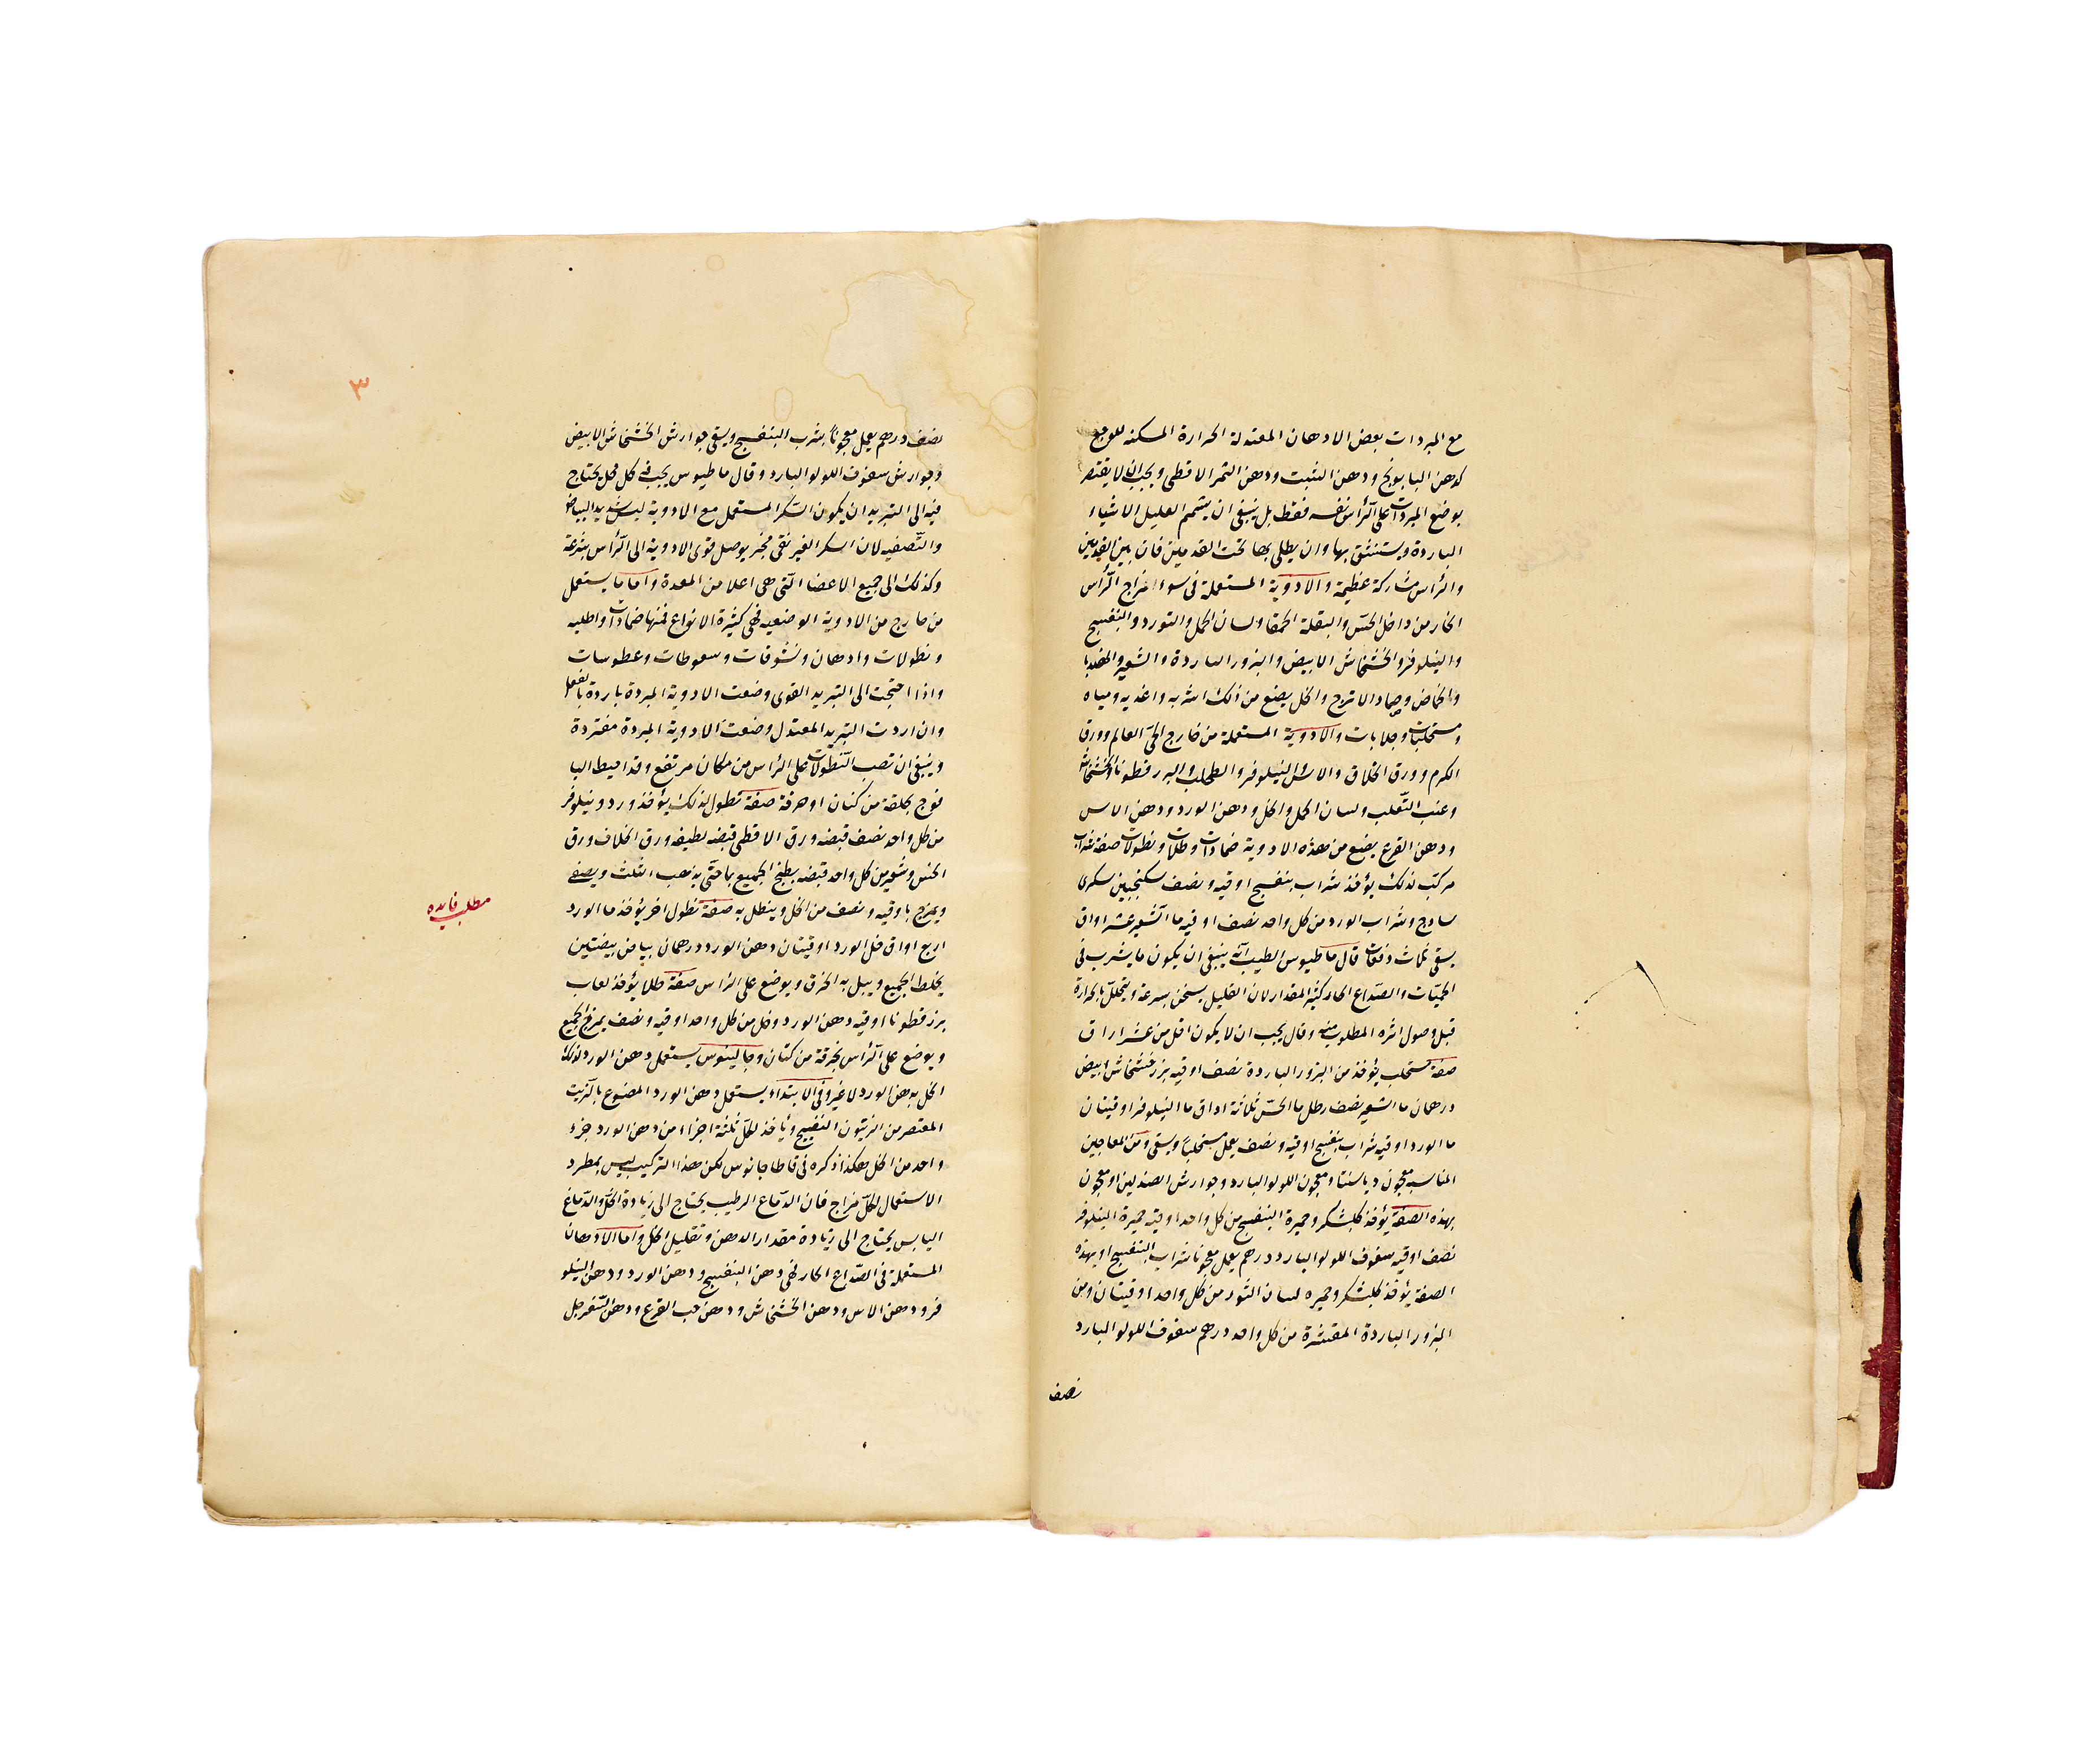 مع المبردات بعض الادهان المعتدلة الحرارة المسكنه للوجع
كدهن البابونج ودهن الشبت ودهن الثمر الاقطى ويجب ان لا يقتصر
بوضع المبردات على الرأس نفسه فقط بل ينبغى ان يشمم العليل الاشياء
الباردة ويستنشق بها وان يطلى بها تحت القدمين فان بين القدمين
والرأس مشاركة عظيمة والادوية المستعملة فى سوء المزاج الرأس
الحار من داخل الخس والبقلة الحمقا ولسان الحمل والورد والبنفسج
والنيلوفر والخشخاش الابيض والبزور الباردة والشعير والهندبا
والحماض وحماض الاترج والخل يصنع من ذلك اشربه واغذيه ومياه
ومستحلبات وجلابات والادوية المستعملة من خارج الحى العالم وورق
الكرم وورق الخلاف والاس والنيلوفر والطحلب والبزر قطونا والخشخاش
وعنب الثعلب ولسان الحمل والخل ودهن الورد ودهن الاس
ودهن القرع يصنع من هذه الادوية ضمادات وطلاآت ونطولات صفة شراب
مركب لذلك يؤخذ شراب بنفسج اوقيه ونصف سكنجبين سكرى
ساذج وشراب الورد من كل واحد نصف اوقيه ما الشعير عشر اواق
يسقى ثلاث دفعات قال ماطيوس الطبيب انه ينبغى ان يكون ما يشرب فى
الحميات والصداع الحار كثير المقدار لان القليل يسخن بسرعة ويتحلل بالحرارة
قبل وصول اثره المطلوب منه وقال يجب ان لا يكون اقل من عشر اراق
صفة مستحلب يؤخذ من البزور الباردة نصف اوقيه بزر خشخاش ابيض
درهمان ما الشعير نصف رطل ما الخس ثلاثة اواق ما النيلوفر اوقيتان
ما الورد اوقيه شراب بنفسج اوقيه ونصف يعمل مستحلبا ويسقى ومن المعاجين
المناسبه معجون دياسنتا ومعجون اللولو البارد وجوارش الصندلين او معجون
بهذه الصفة يؤخذ كلشكر وخميرة البنفسج من كل واحد اوقيه خميرة النيلوفر
نصف اوقيه سفوف اللولو البارد درهم يعمل معجونا بشراب البنفسج او بهذه
الصفة يؤخذ كلشكر وخميره لسان الثور من كل واحد اوقيتان ومن
البزور الباردة المقشرة من كل واحد درهم سفوف اللولو البارد
نصف
٣
نصف درهم يعمل معجونا بشرب البنفسج ويسقى جوارش الخشخاش الابيض
وجوارش سفوف اللولو البارد وقال ماطيوس يجب فى كل محل يحتاج
فيه الى التبريد ان يكون السكر المستعمل مع الادوية ليس شديد البياض
والتصفيه لان السكر الغير نقى مجز يوصل قوى الادوية الى الرأس بسرعة
وكذلك الى جميع الاعضا التى هى اعلا من المعدة واما ما يستعمل
من خارج من الادوية الوضعيه فهى كثيرة الانواع فمنها ضمادات واطليه
ونطولات وادهان ونشوقات وسعوطات وعطوسات
واذا احتجت الى التبريد القوى وضعت الادوية المبردة باردة بالفعل
وان اردت التبريد المعتدل وضعت الادوية المبردة مفتردة
وينبغى ان تصب النطولات على الراس من مكان مرتفع وقد احيط اليا
فوخ بحلقة من كتان او خرقة صفة نطول لذلك يؤخذ ورد ونيلوفر
من كل واحد نصف قبضه ورق الاقطى قبضه لطيفه ورق الخلاف ورق
الخس وشعير من كل واحد قبضه يطبخ الجميع بما حتى يذهب الثلث ويصفى
ويمزج باوقيه ونصف من الخل وينطل به صفة نطول اخر يؤخذ ما الورد
مطلب فايده
اربع اواق خل الورد اوقيتان دهن الورد درهمان بياض بيضتين
يخلط الجميع ويبل به الخرق ويوضع على الراس صفة طلا يؤخذ لعاب
بزر قطونا اوقيه دهن الورد وخل من كل واحد اوقيه ونصف يمزج الجميع
ويوضع على الرأس بخرقة من كتان وجالينوس يستعمل دهن الورد لذلك
الخل بدهن الورد لا غير وفى الابتداء يستعمل دهن الورد المصنوع بالزيت
المعتصر من الزيتون النضيج ويأخذ للخل ثلثة اجزاء من دهن الورد جزء
واحد من الخل هكذا ذكره فى قاطاجانوس لكن هذا التركيب ليس بمطرد
الاستعمال لكل مزاج فان الدماغ الرطيب يحتاج الى زيادة الخل والدماغ
اليابس يحتاج الى زيادة مقدار الدهن وتقليل الخل واما الادهان
المستعملة فى الصداع الحار فهى دهن البنفسج ودهن الورد ودهن النيلو
فر ودهن الاس ودهن الخشخاش ودهن حب القرع ودهن السفرجل